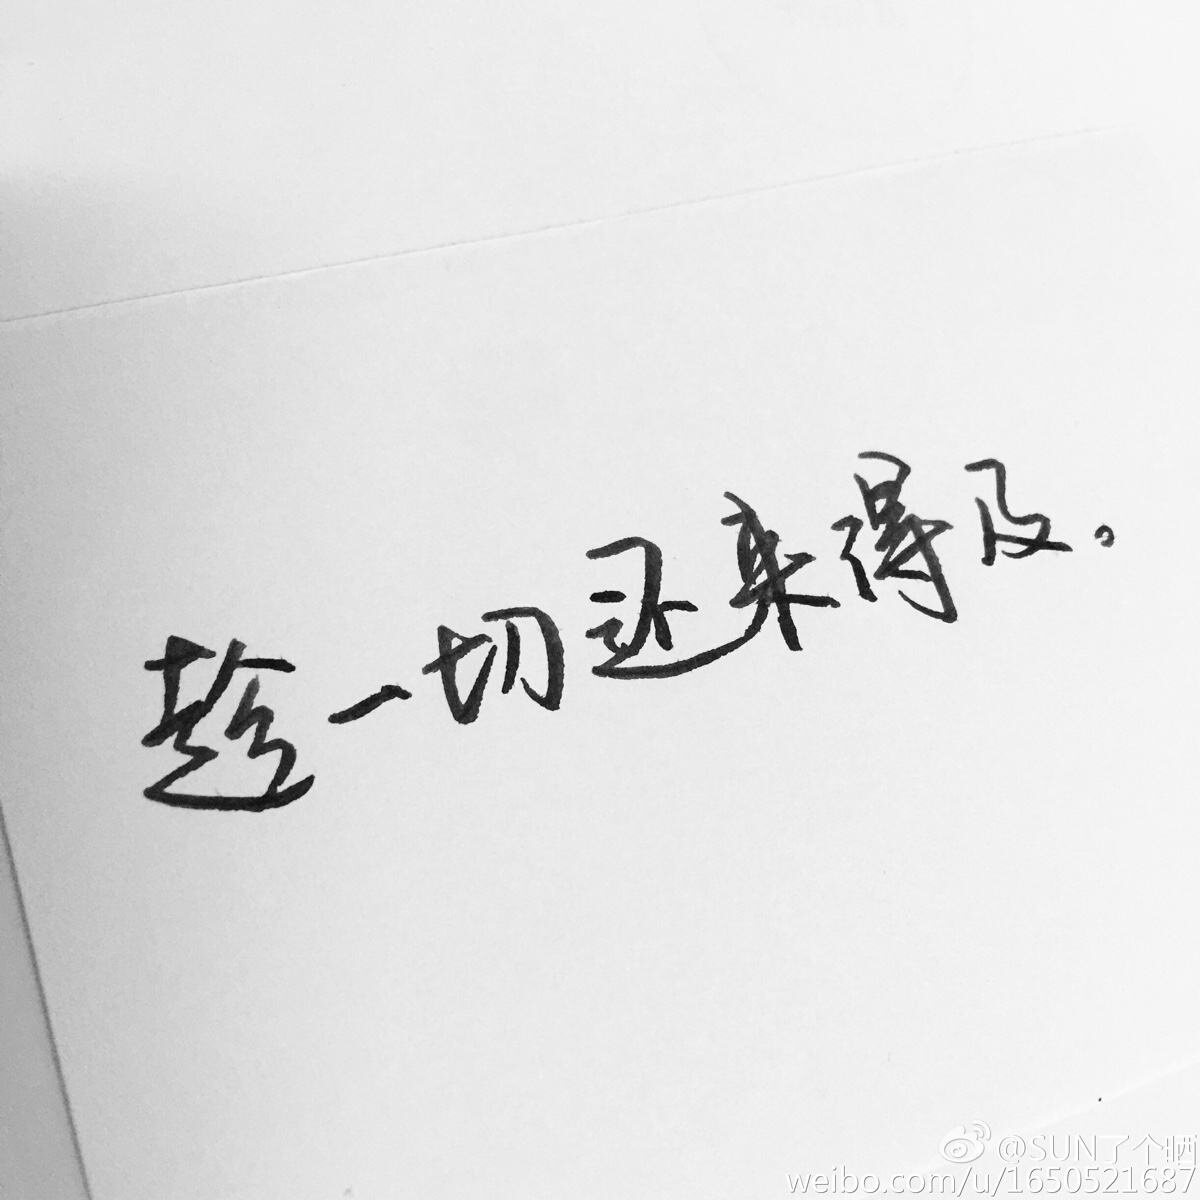 趁一切还来得及。
@SUN了个晒
weibo.com/u/1650521687